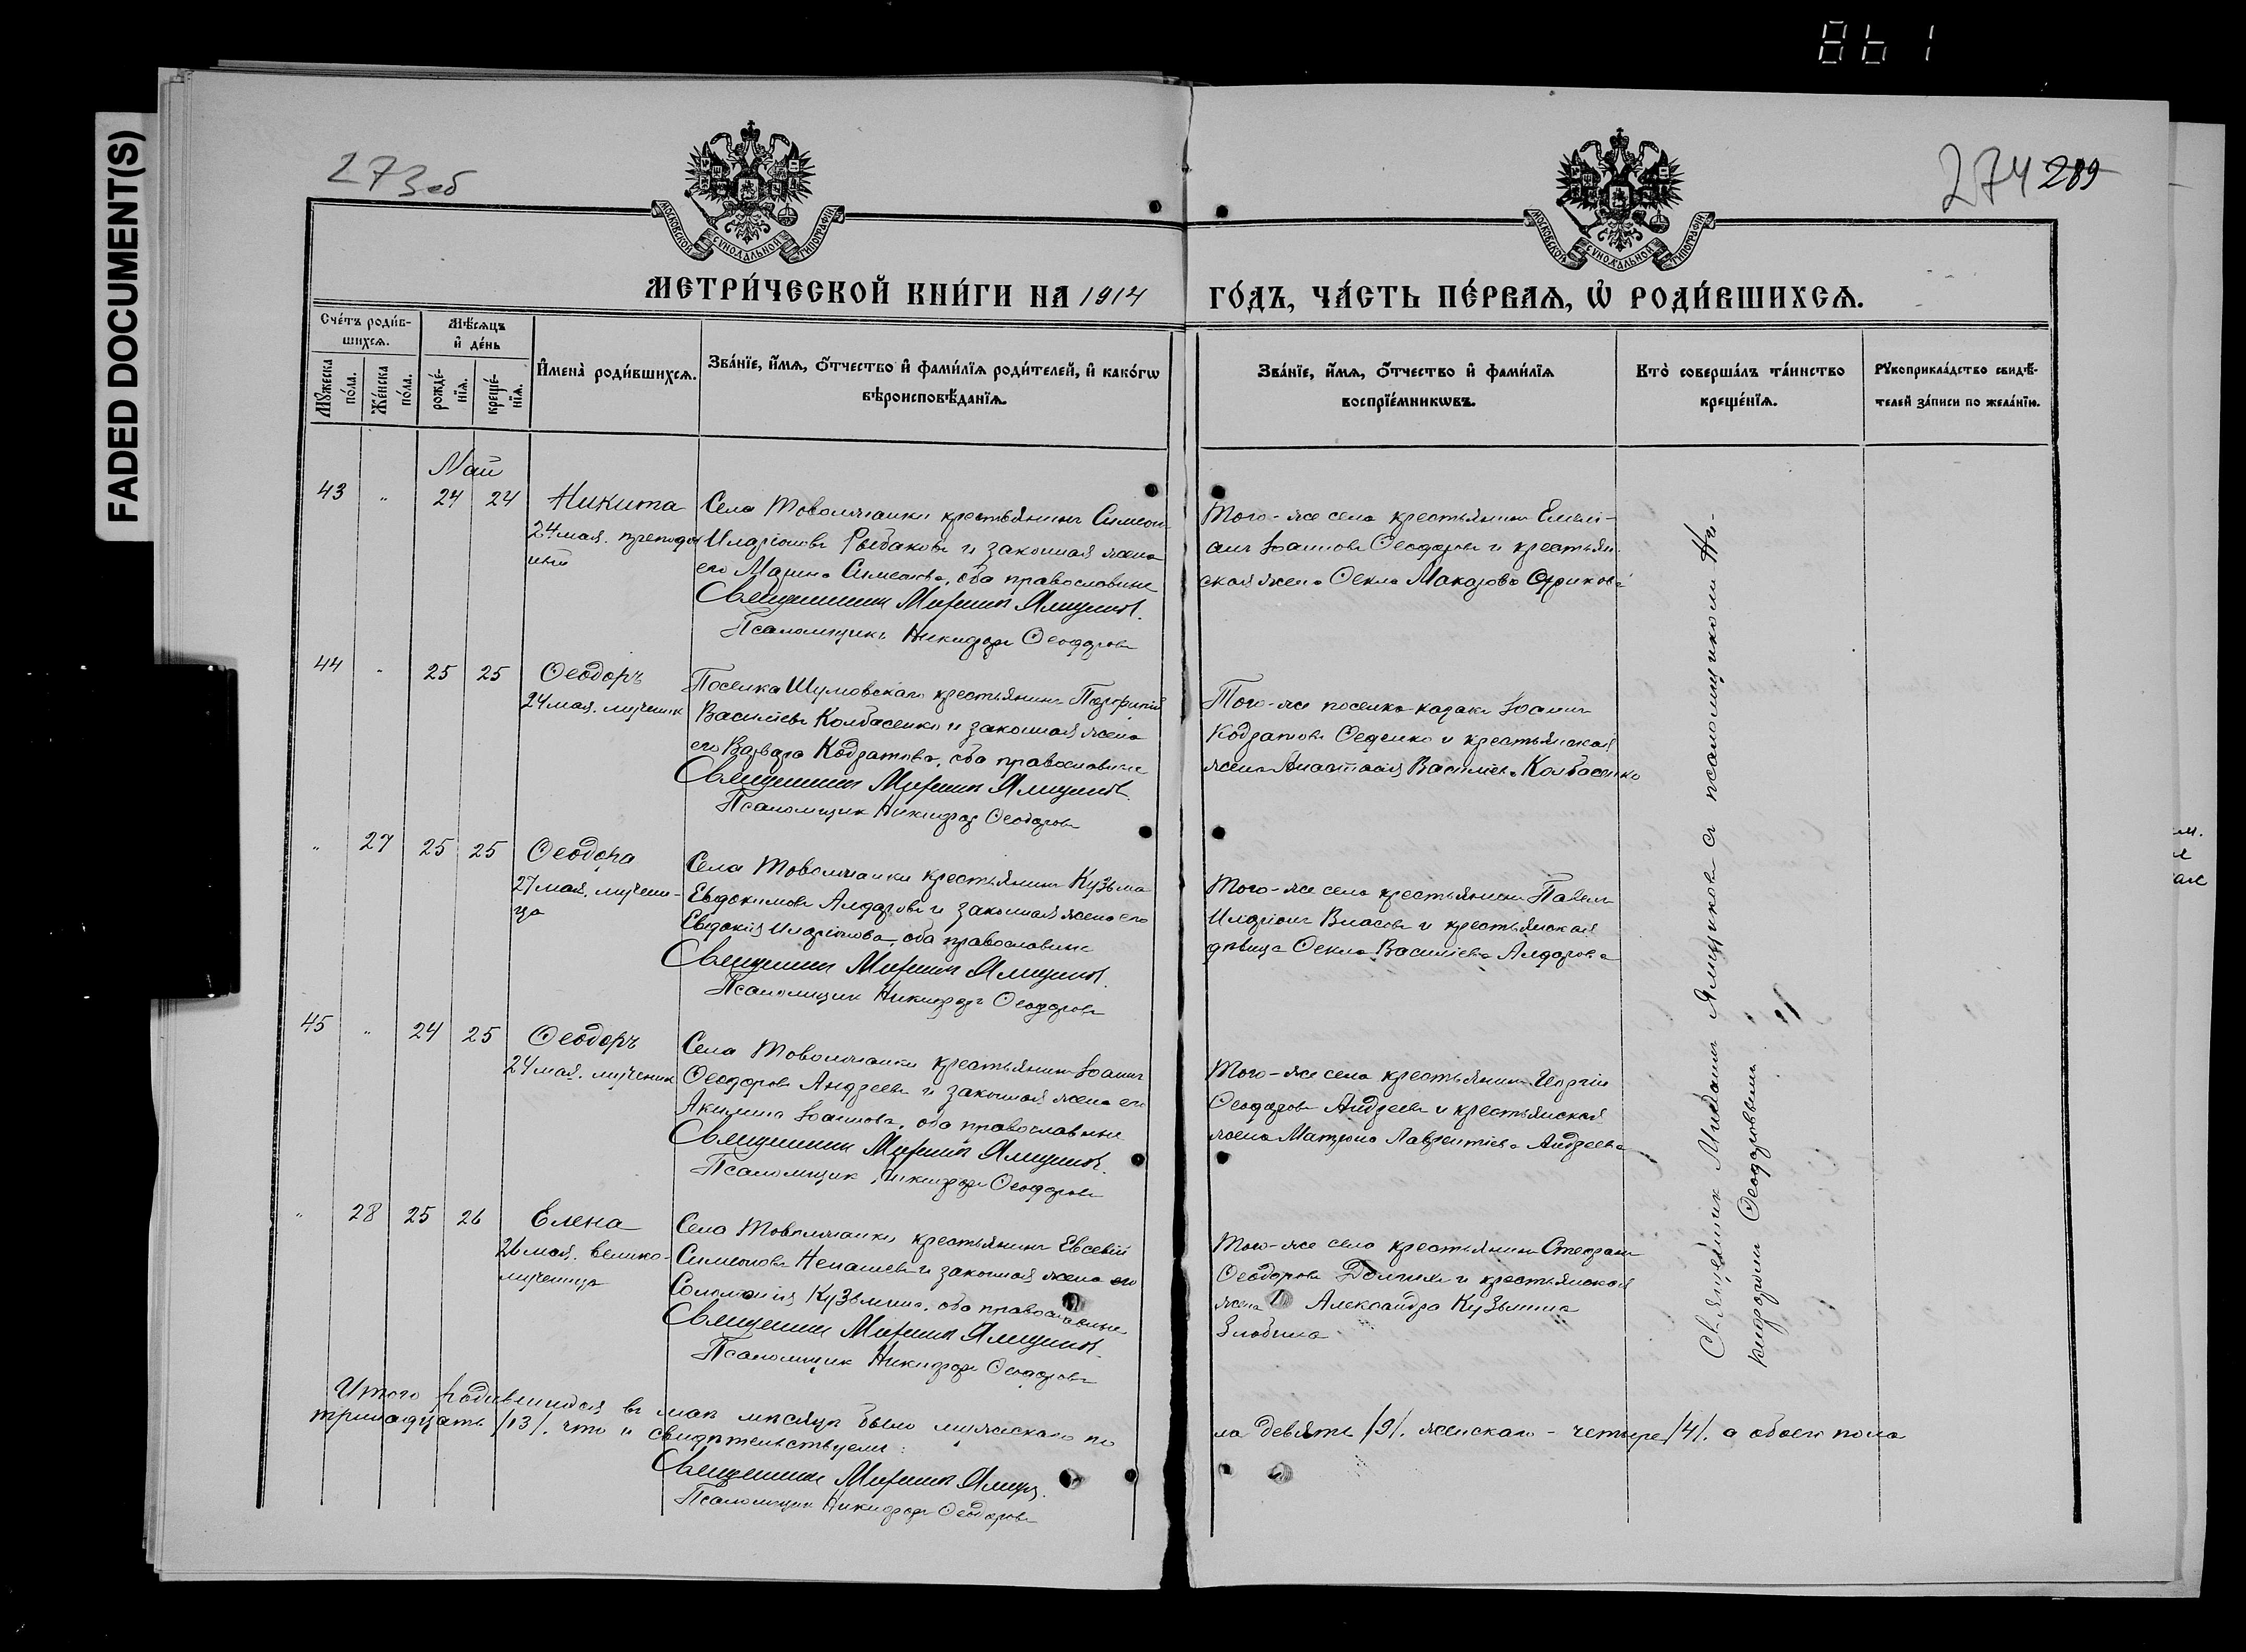 861
FADED DOCUMENT(S)
273об
274 289
МОСКОВСКОЙ СѴНОДАЛЬНОЙ ТИПОГРАФІИ
МОСКОВСКОЙ СѴНОДАЛЬНОЙ ТИПОГРАФІИ
МЕТРИ́ЧЕСКОЙ КНИ́ГИ НА 1914 ГО́ДЪ, ЧА́СТЬ ПЕ́РВАѦ, Ѡ҆ РОДИ́ВШИХСѦ.
Сче́тъ роди́в-
шихсѧ.
Мꙋ́жеска по́ла.
Же́нска по́ла.
Мѣ́сѧцъ
и҆ де́нь
рожде́-
нїѧ.
креще́-
нїѧ.
И҆мена̀ роди́вшихсѧ.
Зва́нїе, и҆́мѧ, ѻ҆́тчество и҆ фами́лїѧ роди́телей, и҆ како́гѡ
вѣроисповѣ́данїѧ.
Зва́нїе, и҆́мѧ, ѻ҆́тчество и҆ фами́лїѧ
воспрїе́мникѡвъ.
Кто̀ соверша́лъ та́инство
креще́нїѧ.
Рꙋкоприкла́дство свидѣ́-
телей за́писи по жела́нїю.
Май
43 " 24 24 Никита
24 мая. преподоб
ный
Села Товолжанки крестьянинъ Симеон
Иларіоновъ Рыбаковъ и законная жена
его Марина Симеонова, оба православные
Священникъ Михаилъ Ямщиковъ.
Псаломщикъ Никифоръ Ѳеодоровъ
Того-же села крестьянинъ Емели-
анъ Іоанновъ Ѳеодоровъ и крестьян-
ская жена Ѳекла Макарова
44 " 25 25 Ѳеодоръ
24 мая. мученик
Поселка Шумовскаго крестьянинъ Порфирій
Василіевъ Колбасенко и законная жена
его Варвара Кодратова, оба православные
Священникъ Михаилъ Ямщиковъ.
Псаломщик Никифоръ Ѳеодоровъ
Того-же поселка казакъ Іоаннъ
Кодратовъ Ѳеденко и крестьянская
жена Анастасія Василіева Колбасенко
" 27 25 25 Ѳеодора
27 мая. мучени-
ца
Села Товолжанки крестьянинъ Кузьма
Евдокимовъ Алдаровъ и законная жена его
Евдокія Иларіонова, оба православные
Священникъ Михаилъ Ямщиковъ.
Псаломщик Никифоръ Ѳеодоровъ
Того-же села крестьянинъ Павелъ
Иларіонъ Власовъ и крестьянская
дѣвица Ѳекла Василіева Алдарова
45 " 24 25 Ѳеодоръ
24 мая. мученик
Села Товолжанки крестьянинъ Іоаннъ
Ѳеодоровъ Андреевъ и законная жена его
Акилина Іоаннова, оба православные
Священникъ Михаилъ Ямщиковъ.
Псаломщик Никифоръ Ѳеодоровъ
Того-же села крестьянинъ Георгій
Ѳеодоровъ Андреевъ и крестьянская
жена Матрона Лаврентіева Андреева
" 28 25 26 Елена
26 мая. велико-
мученица
Села Товолжанки крестьянинъ Евсевій
Симеоновъ Ненашевъ и законная жена его
Соломонія Кузьмина, оба православные
Священникъ Михаилъ Ямщиковъ.
Псаломщик Никифоръ Ѳеодоровъ
Того-же села крестьянинъ Стефанъ
Ѳеодоровъ и крестьянская
жена Александра Кузьмина
Злобина
Священник Михаилъ Ямщиковъ съ псаломщикомъ Ни-
кифоромъ Ѳеодоровымъ
Итого родившихся въ маѣ мѣсяцѣ было мужскаго по
ла девять /9/. женскаго - четыре /4/. а обоего пола
тринадцать /13/. что и свидѣтельствуемъ:
Священникъ Михаилъ Ямщ.
Псаломщик Никифоръ Ѳеодоровъ